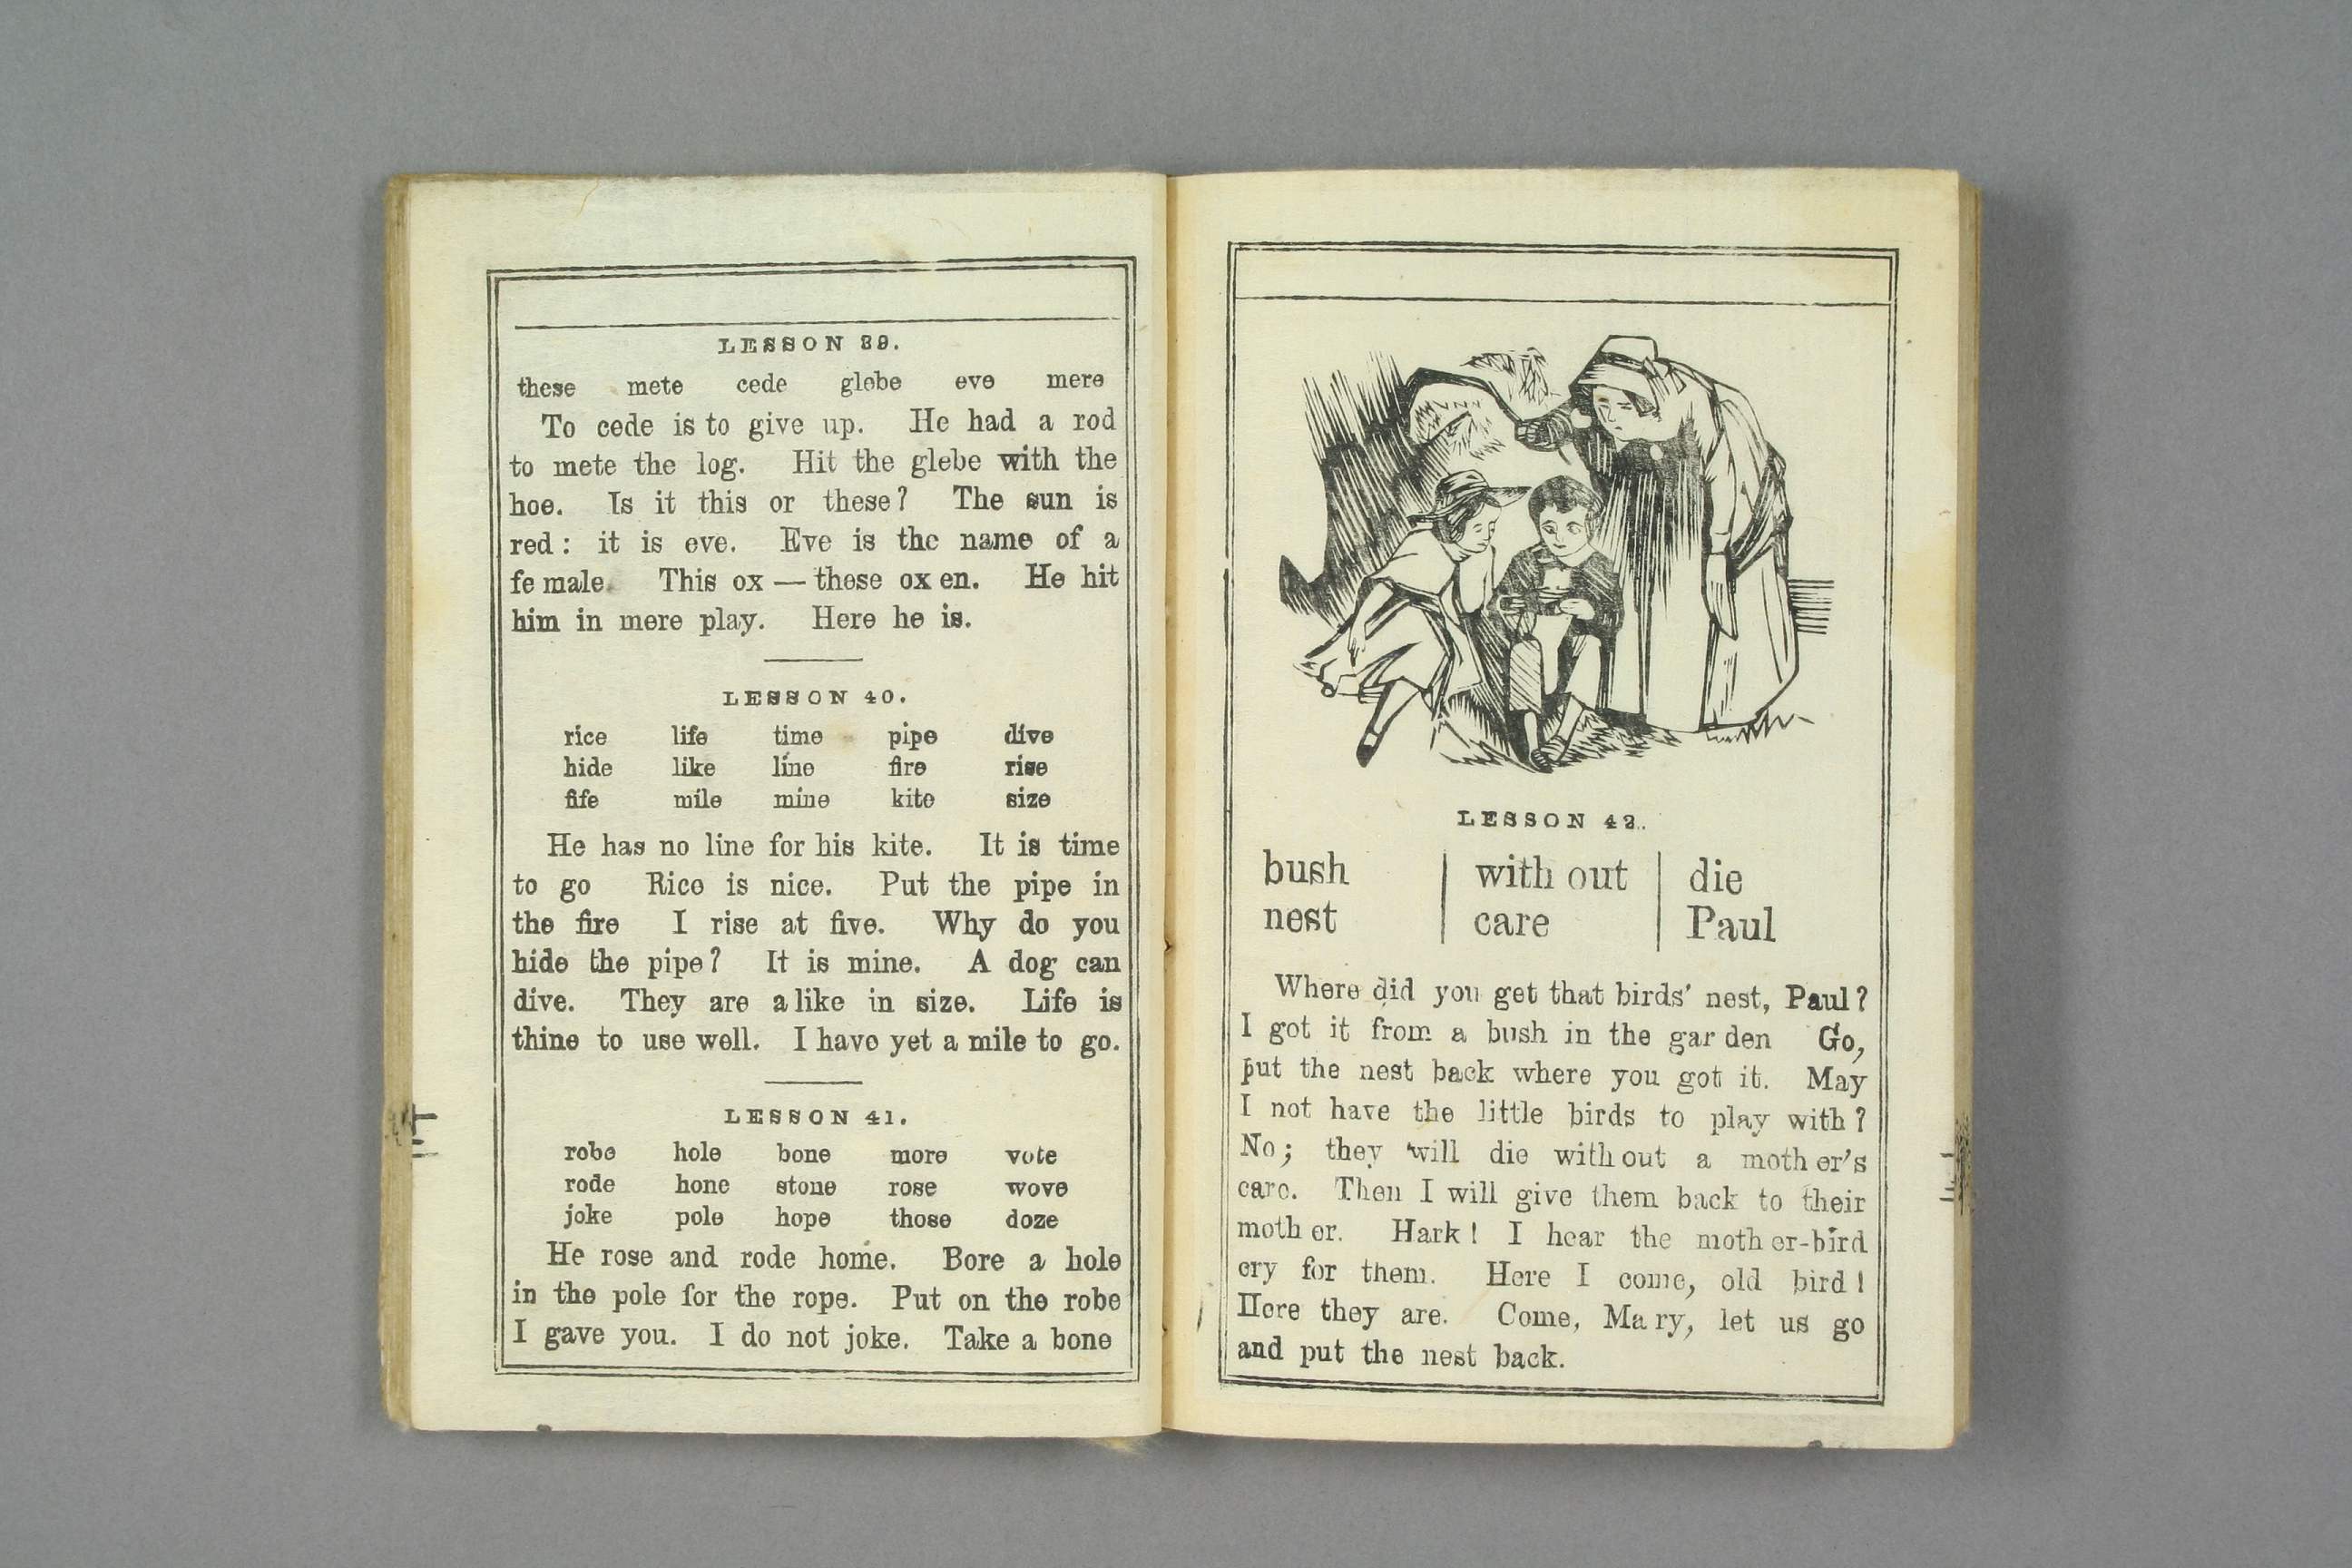 LESSON 39.
these mete cede glebe eve mere
To cede is to give up. He had a rod
to mete the log. Hit the glebe with the
hoe. Is it this or these? The sun is
red: it is eve. Eve is the name of a
fe male. This ox — these ox en. He hit
him in mere play. Here he is.
LESSON 40.
rice life time pipe dive
hide like line fire rise
fife mile mine kite size
He has no line for his kite. It is time
to go Rice is nice. Put the pipe in
the fire I rise at five. Why do you
hide the pipe? It is mine. A dog can
dive. They are a like in size. Life is
thine to use well. I have yet a mile to go.
LESSON 41.
robe hole bone more vote
rode hone stone rose wove
joke pole hope those doze
He rose and rode home. Bore a hole
in the pole for the rope. Put on the robe
I gave you. I do not joke. Take a bone
LESSON 42.
bush with out die
nest care Paul
Where did you get that birds' nest, Paul?
I got it from a bush in the gar den Go,
put the nest back where you got it. May
I not have the little birds to play with?
No; they will die with out a moth er's
care. Then I will give them back to their
moth er. Hark! I hear the moth er-bird
cry for them. Here I come, old bird!
Here they are. Come, Ma ry, let us go
and put the nest back.